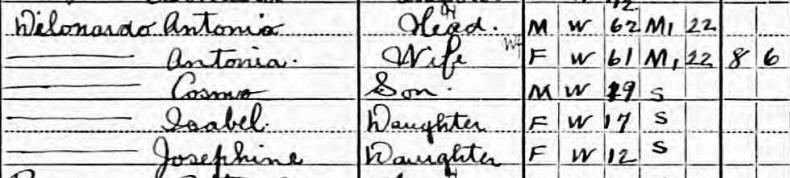 Dilonardo Antonio Head. M W 62 M1 22
Antonia. Wife F W 61 M1 22 8 6
Cosmo Son. M W 19 S
Isabel. Daughter F W 17 S
Josephine Daughter F W 12 S